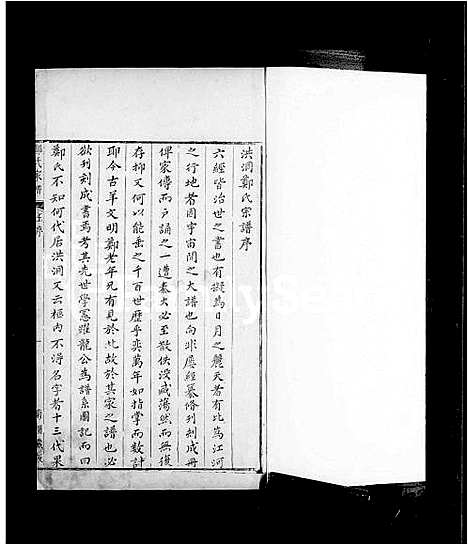 洪洞鄭氏宗譜序
六經皆治世之書也有擬為日月之麗天者有比為江河
之行地者固宇宙間之大譜也向非屢經纂脩刊刻成冊
俾家傳而戶誦之一遭秦火必至散佚沒滅蕩然而無復
存抑又何以能垂之千百世歷乎亥萬年如指掌而數計
耶今古羊文明鄭老年兄有見於此故於其家之譜也必
欲刊刻成書焉考其先世學憲躍龍公為譜系圖記而曰
鄭氏不知何代居洪洞又云樞內不得名字者十三代果
鄭氏宗譜
序
一